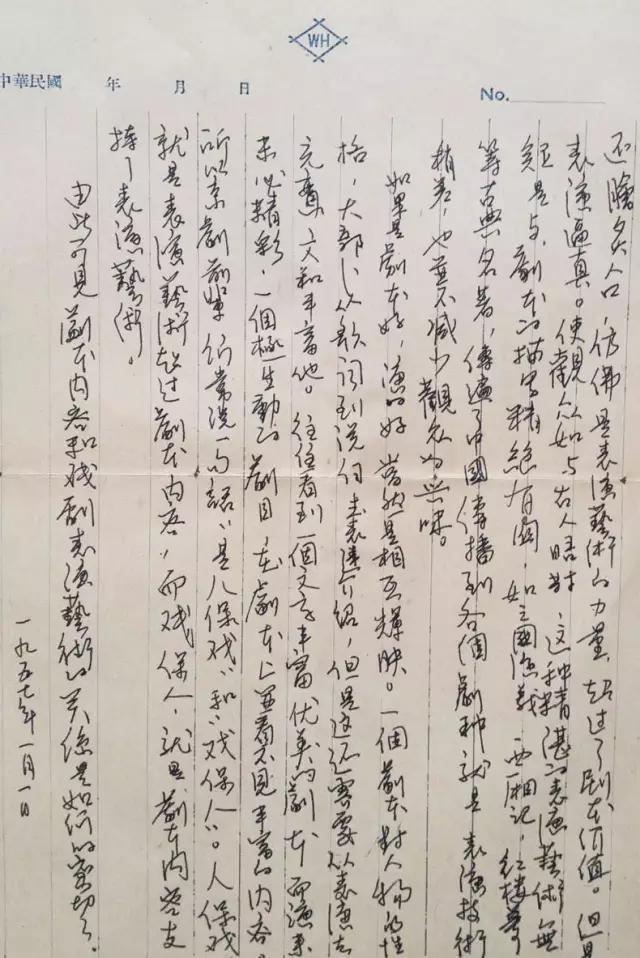 WH
中華民國 年 月 日
No.
还膾炙人口，仿佛是表演藝術的力量，超过了剧本价值。但是
表演逼真。使覌众如与古人晤对，这种精湛的表演藝術無
疑是与剧本的描写精絶有関，如三國演义 西厢記，红楼夢
等古典名著，傳遍了中國傳播到各個劇种就是表演技術
稍差，也並不减少觀众的兴味。
如果是劇本好，演的好 當然是相互輝映。一個劇本对人物的性
格，大部分从歌詞到説白去表達介绍，但是这还需要从表演去
充實它和丰富他。往往看到一個文字丰富、优美的劇本 而演来
未必精彩，一個極生動的劇目 在劇本上並看不見丰富的内容。
所以京劇前輩们常说一句話“是人保戏”和“戏保人”。人保戏
就是表演藝術超过劇本内容，而戏保人，就是劇本内容支
持了表演藝術。
由此可見劇本内容和戏剧表演藝術的关係是如何的密切了。
一九五七年一月一日